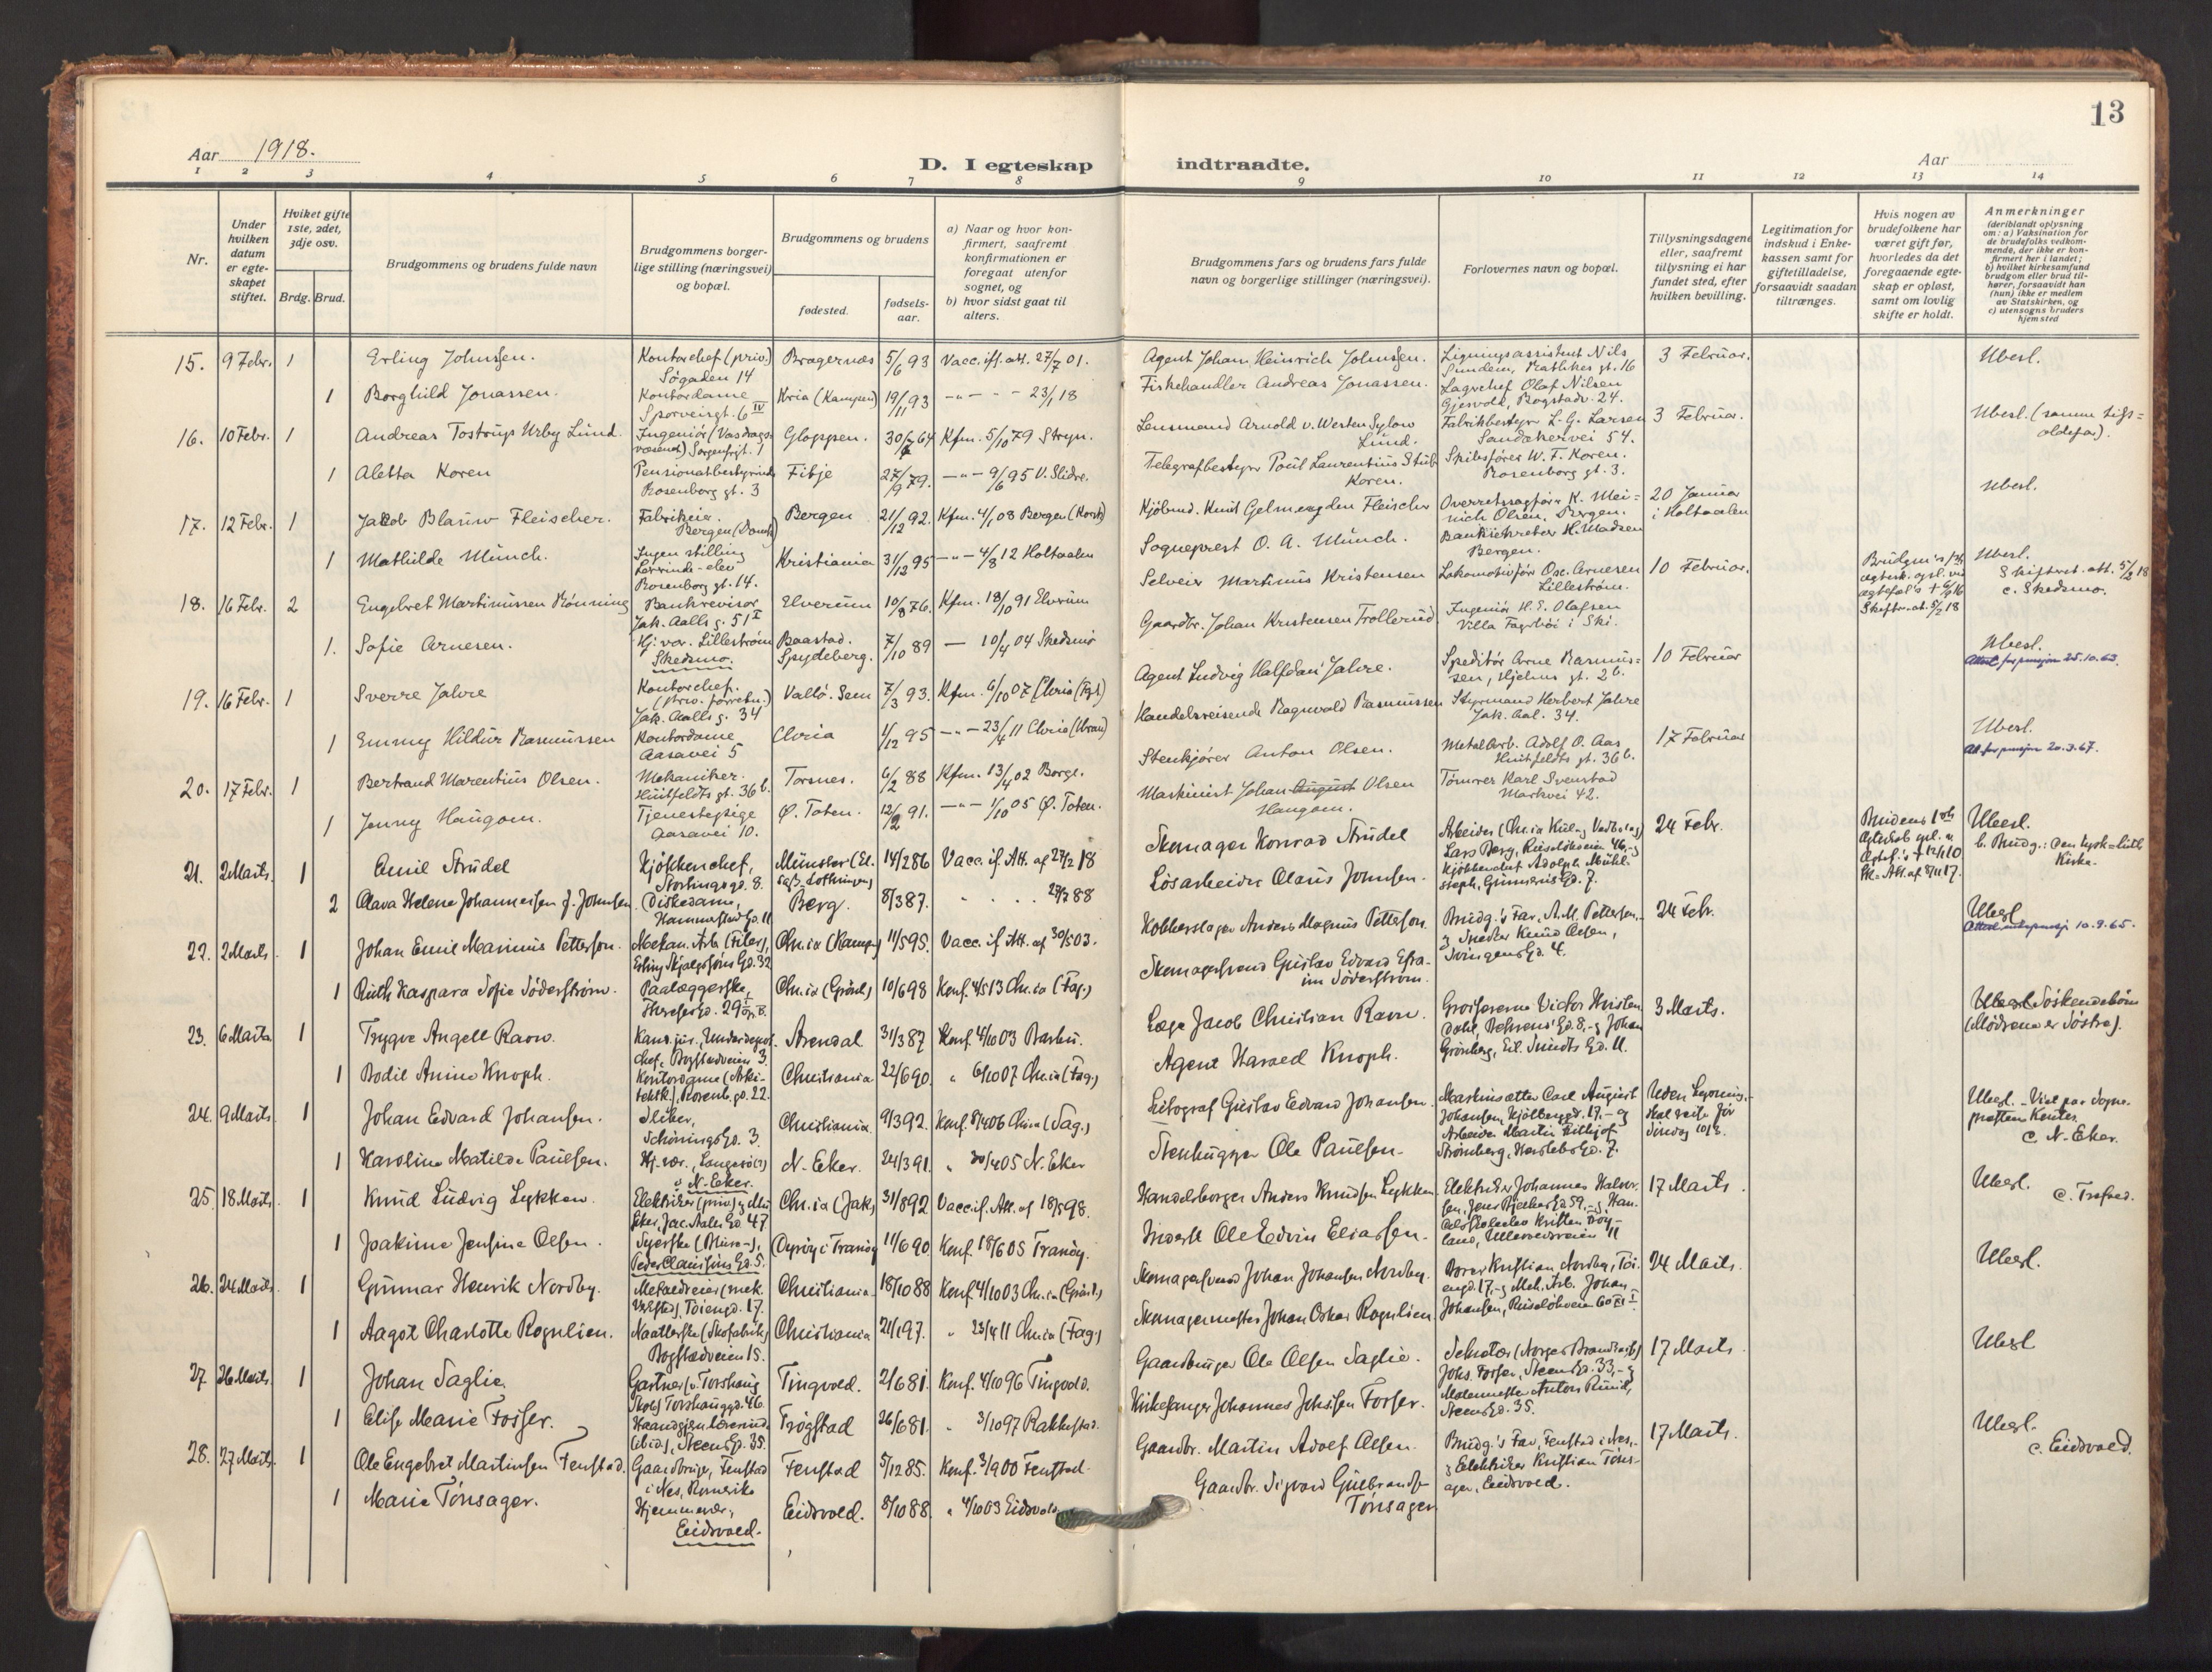 13
Aar 1918.
D. I egteskap indtraadte.
Aar
1 2 3 4 5 6 7 8 9 10 11 12 13 14
Nr.
Under hvilken datum er egteskapet stiftet.
Hviket gifte 1ste, 2det, 3dje osv.
Brdg. Brud.
Brudgommens og brudens fulde navn
Brudgommens borgerlige stilling (næringsvei) og bopæl.
Brudgommens og brudens
fødested.
fødselsaar.
a) Naar og hvor konfirmert, saafremt konfirmationen er foregaat utenfor sognet, og
b) hvor sidst gaat til alters.
Brudgommens fars og brudens fars fulde navn og borgerlige stillinger (næringsvei).
Forlovernes navn og bopæl.
Tillysningsdagene eller, saafremt tillysning ei har fundet sted, efter hvilken bevilling.
Legitimation for indskud i Enkekassen samt for giftetilladelse, forsaavidt saadan tiltrænges.
Hvis nogen av brudefolkene har været gift før, hvorledes da det foregaaende egteskap er opløst, samt om lovlig skifte er holdt.
Anmerkninger
(deriblandt oplysning om: a) Vaksination for de brudefolks vedkommende, der ikke er konfirmert her i landet; b) hvilket kirkesamfund brudgom eller brud tilhører, forsaavidt han (hun) ikke er medlem av Statskirken, og c) utensogns bruders hjemsted
15. 9 Febr. 1 Erling Johnsen. Kontorchef (priv.) Søgaden 14 Bragernæs 5/6 93 Vacc. ifl. att. 27/7 01. Agent Johan Heinrich Johnsen. Ligningsassistent Nils Sundem, gt. 16 3 Februar. Ubesl.
1 Borghild Jonassen. Kontordame Sporveisgt. 6 IV Kria (Kampen) 19/11 93 23/1 18 Fiskehandler Andreas Jonassen. Lagerchef Olaf Nilsen Gjesvold, Bogstadv. 24.
16. 10 Febr. 1 Andreas Tostrup Urby Lund. Ingeniør (Vasdragsvæsenet) Sorgenfrigt. 1 Gloppen. 30/6 64 Kfm. 5/10 79 Stryn. Lensmand Arnold v. Westen Sylow Lund. Fabrikbestyrer L. G. Larsen Sandakervei 54. 3 Februar. Ubesl. (samme tipsoldefar).
1 Aletta Koren Pensionatbestyrinde Rosenborg gt. 3 Fitje 27/9 79. 9/6 95 V. Slidre. Telegrafbestyrer Poul Laurentius Stub Koren. Skibsfører W. F. Koren. Rosenborg gt. 3.
17. 12 Febr. 1 Jakob Blauw Fleischer. Fabrikeier. Bergen 21/12 92. Kfm. 4/1 08 Bergen (Korsk) Kjøbmd. Knut Gelmeyden Fleischer Overretssagfører K. Meinich Olsen, Bergen. 20 Januar i Holtaalen Ubesl.
1 Mathilde Münch. Ingen stilling Lærerinde-elev Rosenborg gt. 14. Kristiania 31/12 95 4/8 12 Holtaalen Sogneprest O. A. Münch. Banksekretær H. Madsen Bergen.
18. 16 Febr. 2 Engebret Martinussen Rønning Bankrevisor Jak. Aalls g. 51 I Elverum 10/8 76. Kfm. 18/10 91 Elverum Selveier Martinus Kristensen Lokomotivfører Osc. Arnesen Lillestrøm. 10 Februar. Brudgm's 1ste ægtesk. opl. ved ægtefæl's + 6/9 16 Skiftr. at. 5/2 18 Ubesl. Skifteret. att. 5/2 18 c. Skedsmo.
1. Sofie Arnesen. Hj: vær. Lillestrøm Skedsmo. Baastad. Spydeberg. 7/10 89 10/4 04 Skedsmo Gaardbr. Johan Kristensen Trollerud Ingeniør H. E. Olafsen Villa Fagerhøi i Ski.
19. 16 Febr. 1 Sverre Jahre Kontorchef. (priv. forretn.) Jak. Aalls g. 34 Vallø. Sem 7/3 93. Kfm. 6/10 07 Chria (Fgb.) Agent Ludvig Halfdan Jahre. Speditør Arne Rasmussen, Hjelms gt. 2 b. 10 Februar Ubesl. Attest for pensjon 25.10.63.
1 Emmy Hildur Rasmussen Kontordame Aasavei 5 Chria 1/12 95 23/4 11 Chria (Uran) Handelsreisende Ragnvald Rasmussen Styrmand Herbert Jahre Jak. Aal. 34.
20. 17 Febr. 1 Bertrand Marentius Olsen. Mekaniker. Huitfeldts gt. 36 b. Torsnes. 6/2 88 Kfm. 13/4 02 Borge. Stenkjører Anton Olsen. Metalarb. Adolf O. Aas Huitfeldts gt. 36 b. 17 Februar Ubesl. Att. for pensjon 20.3.67.
1 Jenny Haugom. Tjenestepige Aasavei 10. Ø. Toten. 12/2 91. 1/10 05 Ø. Toten. Maskinist Johan August Olsen Haugom. Tømrer Karl Svenstad Markvei 42.
21. 2 Marts 1 Emil Strudel Kjøkkenchef, Stortingsgd. 8. Münster (Elsass-Lothringen) 14/2 86 Vacc. if. Att. af 27/2 18 Skomager Konrad Strudel Arbeider (Chr.ia Kul- og Vedbolag) Lars Berg, Ruseløkveien 46, og Kjøkkenchef Adolph 24 Febr. Brudens 1ste Ægteskab opl. v. Ægtef.'s + 12/1 10 Sk.-Att. af 8/11 17. Ubesl. b. Brudg.: Den tysk-luth. Kirke.
2 Olava Helene Johannessen f. Johnsen. Diskedame, Hammerstad Gd. 11 Berg. 8/3 87. 27/3 88 Løsarbeider Olaus Johnsen.
22. 2 Marts 1 Johan Emil Marinius Pettersen. Mekan. Arb. (Filer), Erling Skjalgssøns Gd. 32 Chr.ia (Kamp.) 11/5 95. Vacc. if. Att. af 30/5 03. Kobberslager Anders Magnus Pettersen. Brudg.'s Far, A. M. Pettersen, og Snedker Knud Olsen, Svingens Gd. 4. 24 Febr. Ubesl. 10.9.65.
1 Ruth Kaspara Sofie Söderström. Paalæggerske, Thereses Gd. 29 Chr.ia (Grønl.) 10/6 98 Konf. 4/5 13 Chr.ia (Fag.) Skomagersvend Gustav Edvard Efraim Söderström.
23. 6 Marts 1 Trygve Angell Ravn. Kand. jur., Underdepotchef, Bogstadveien 3. Arendal 31/3 87 Konf. 4/10 03 Barbu. Læge Jacob Christian Ravn. Grossererne Victor Kristen Dahl, Behrens' Gd. 8, og Johan Grönberg, Eil. Sundts Gd. 11. 3 Marts. Ubesl. Søskendebørn (Mødrene er Søstre).
1 Bodil Anine Knoph. Kontordame (Arkitektk.), Rosenb. gd. 22. Christiania 22/6 90. 6/10 07 Chr.ia (Fag.) Agent Harald Knoph.
24. 9 Marts 1 Johan Edvard Johansen. Sliber, Schønings Gd. 3. Christiania 9/3 92. Konf. 8/4 06 Chr.ia (Sag.) Litograf Gustav Edvard Johansen. Maskinsætter Carl August Johansen, Kjølberggd. 17, og Arbeider Martin Fritjof Strömberg, Herslebs Gd. 7. Uden Lysning, skal reise før Søndag 10/3. Ubesl. - Viet paa Sogneprestens Kontor. c. N. Eker.
1 Karoline Matilde Paulsen. Hj. vær., Langesø (?) i N. Eker. N. Eker. 24/3 91. 30/4 05 N. Eker Stenhugger Ole Paulsen.
25. 18 Marts 1 Knud Ludvig Lykken. Elektriker (priv.) og Musiker, Jac. Aalls Gd. 47 Chr.ia (Jak.) 31/8 92 Vacc. if. Att. af 18/5 98. Handelsborger Anders Knudsen Lykken. Elektriker Johannes Halvorsen, Jens Bjelkes Gd. 59, og Handelsskoleelev Kristen Ullevoldsveien 11 17 Marts. Ubesl. c.
1 Joakime Jensine Olsen. Syerske (Blusse-), Peder Claussøns Gd. 5. Dyrøy i Tranøy 11/6 90. Konf. 18/6 05 Tranøy. Inderst Ole Edvin Eliassen.
26. 24 Marts. 1 Gunnar Henrik Nordby. Metaldreier (mek. Verksted), Tøiengd. 17. Christiania 18/10 88 Konf. 4/10 03 Chr.ia (Grønl.) Skomagersvend Johan Johansen Nordby. Borer Kristian Nordby, Tøiengd. 17, og Mek. Arb. Johan Johansen, Ruseløkveien 60 24 Marts. Ubesl.
1 Aagot Charlotte Rognlien. Naatlerske (Skofabrik) Bogstadveien 15. Christiania 21/1 97. 23/4 11 Chr.ia (Fag.) Skomagermester Johan Oskar Rognlien
27. 26 Marts. 1 Johan Saglie. Gartner (v. Torshaug Skole) Torshauggd. 46. Tingvold. 2/6 81. Konf. 4/10 96 Tingvold. Gaardbruger Ole Olsen Saglie. Sekretær (Norges Brandkasse) Johs. Fosser, Steens Gd. 33, og Malermester Anton Ruud, Steens Gd. 35. 17 Marts Ubesl
1 Elise Marie Fosser. Haandgjern. lærerinde (ibid.), Steens Gd. 35. Trøgstad 26/6 81. 3/10 97 Rakkestad. Kirkesanger Johannes Johs.sen Fosser.
28. 27 Marts. 1 Ole Engebret Martinsen Fenstad. Gaardbruger, Fenstad i Nes, Romerike Fenstad 5/12 85. Konf. 3/9 00 Fenstad. Gaardbr. Martin Adolf Olsen. Brudg.'s Far, Fenstad i Nes, og Elektriker Kristian Tønsager, Eidsvold. 17 Marts. Ubesl. c. Eidsvold.
1 Marie Tønsager. Hjemmevær., Eidsvold. Eidsvold. 8/10 88. 4/10 03 Eidsvold Gaardbr. Sigvard Gulbrandsen Tønsager.